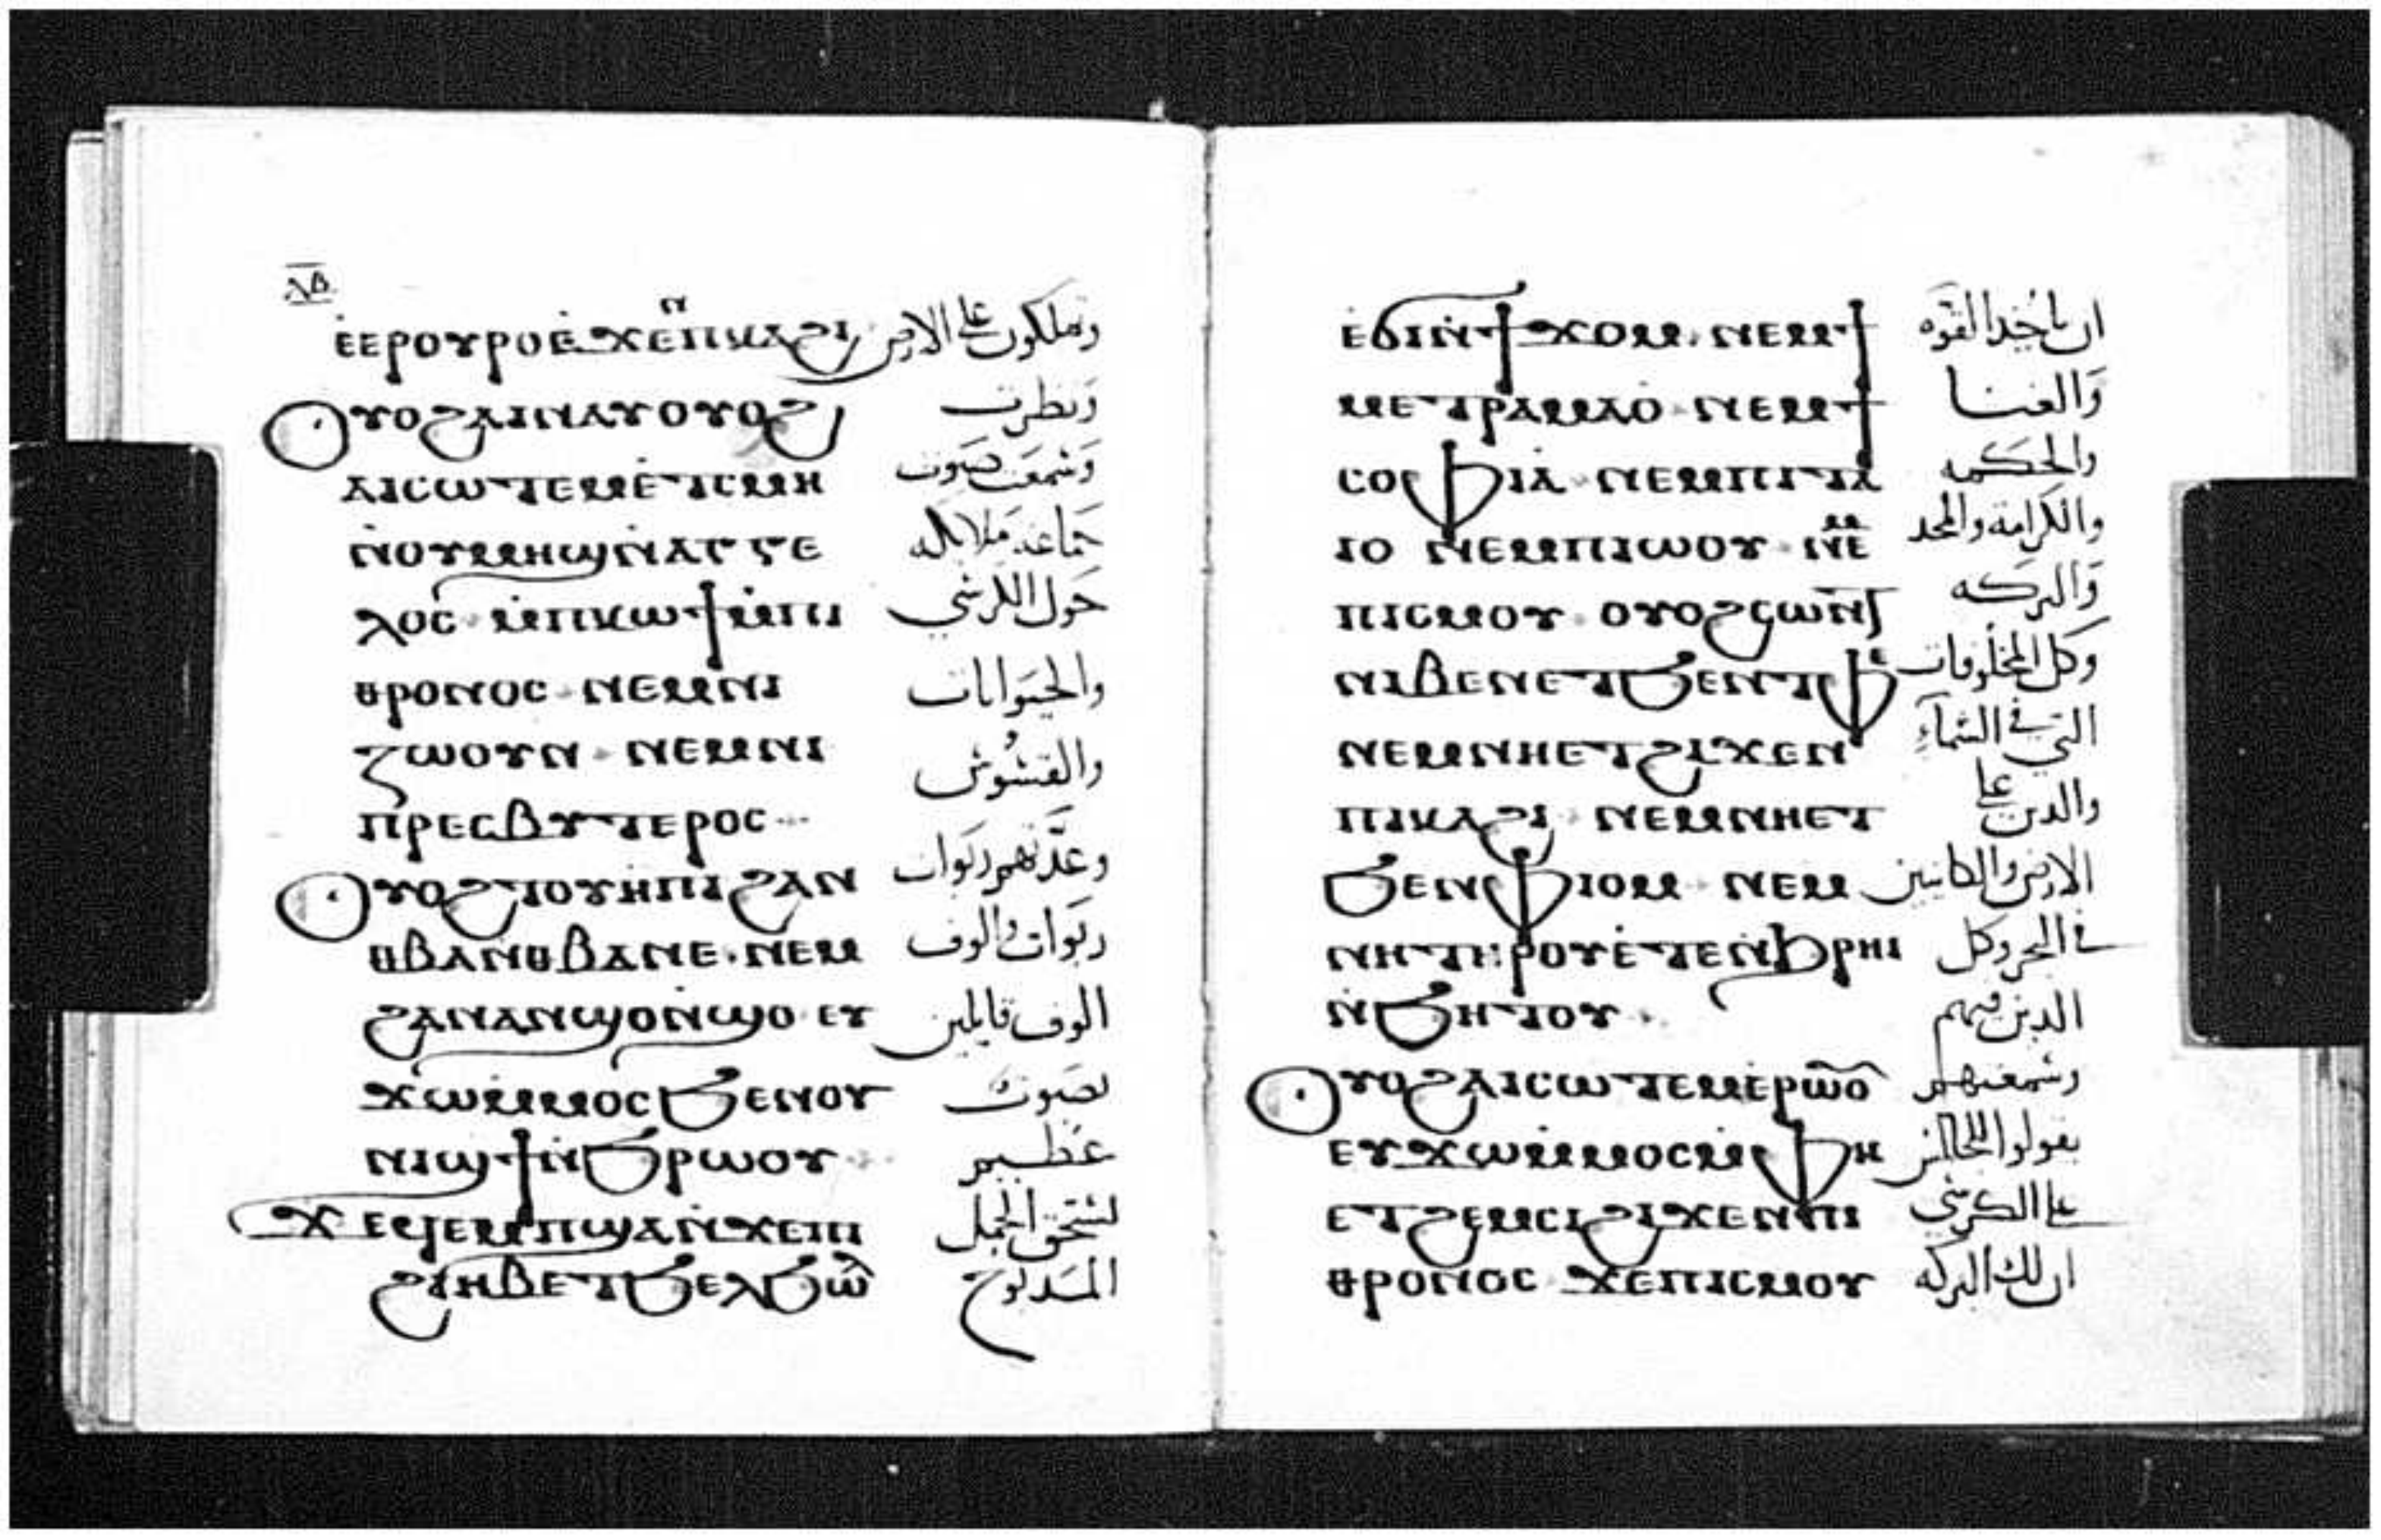 ⲗⲃ
ⲉⲉⲣⲟⲩⲣⲟⲉ̀ϫⲉⲛⲡⲕⲁϩⲓ وتملكون على الارض
Ⲟⲩⲟϩⲁⲓⲛⲁⲩⲟⲩⲟϩ ونظرت
ⲁⲓⲥⲱⲧⲉⲙⲉ̀ⲧⲥⲙⲏ وسمعت صوت
ⲛ̀ⲟⲩⲙⲏϣⲛ̀ⲁⲅⲅⲉ جماعة ملايكه
ⲗⲟⲥ ⲙ̀ⲡⲕⲱϯⲙ̀ⲡⲓ حول الكرسي
ⲑⲣⲟⲛⲟⲥ ⲛⲉⲙⲛⲓ والحيوانات
ⲍⲱⲟⲩⲛ ⲛⲉⲙⲛⲓ والقسوس
ⲡⲣⲉⲥⲃⲩⲧⲉⲣⲟⲥ
Ⲟⲩⲟϩⲧⲟⲩⲏ̀ⲡⲓϩⲁⲛ وعدتهم ربوات
ⲑⲃⲁⲛⲑⲃⲁⲛⲉ ⲛⲉⲙ ربوات والوف
ϩⲁⲛⲁⲛϣⲟⲛ̀ϣⲟ ⲉⲩ الوف قايلين
ϫⲱⲙ̀ⲙⲟⲥϧⲉⲛⲟⲩ بصوت
ⲛⲓϣϯⲛ̀ϧⲣⲱⲟⲩ عظيم
ϫⲉϥⲉⲙⲡϣⲁⲛ̀ϫⲉⲡⲓ لمستحق الحمل
ϩⲓⲏⲃⲉⲧϧⲉⲗϧⲱ̅ المدبوح
ⲉ̀ϭⲓⲛ̀ϯϫⲟⲙ ⲛⲉⲙϯ ان ياخد القوه
ⲙⲉⲧⲣⲁⲙⲁⲟ̀ ⲛⲉⲙϯ والغنا
ⲥⲟⲫⲓⲁ̀ ⲛⲉⲙⲡⲓⲧⲁ والحكمه
ⲓⲟ ⲛⲉⲙⲡⲓⲱⲟⲩ ⲛⲉⲙ والكرامة والمجد
ⲡⲓⲥⲙⲟⲩ ⲟⲩⲟϩⲥⲱⲛⲧ والبركه
ⲛⲓⲃⲉⲛⲉⲧϧⲉⲛⲧⲫⲉ وكل المخلوقات
ⲛⲉⲙⲛⲏⲉⲧϩⲓϫⲉⲛ التي في السماء
ⲡⲓⲕⲁϩⲓ ⲛⲉⲙⲛⲏⲉⲧ والدين على
ϧⲉⲛⲫⲓⲟⲙ ⲛⲉⲙ الارض والكاينين
ⲛⲏⲧⲏⲣⲟⲩⲉ̀ⲧⲉⲛϧⲣⲏⲓ في البحر وكل
ⲛ̀ϧⲏⲧⲟⲩ الدين فيهم
Ⲟⲩⲟϩⲁⲓⲥⲱⲧⲉⲙⲉ̀ⲣⲱⲟ̅ وسمعتهم
ⲉⲩϫⲱⲙ̀ⲙⲟⲥⲙ̀ⲫⲏ يقولوا للجالس
ⲉⲧϩⲉⲙⲥⲓϩⲓϫⲉⲛⲡⲓ على الكرسي
ⲑⲣⲟⲛⲟⲥ ϫⲉⲡⲓⲥⲙⲟⲩ ان لك البركه